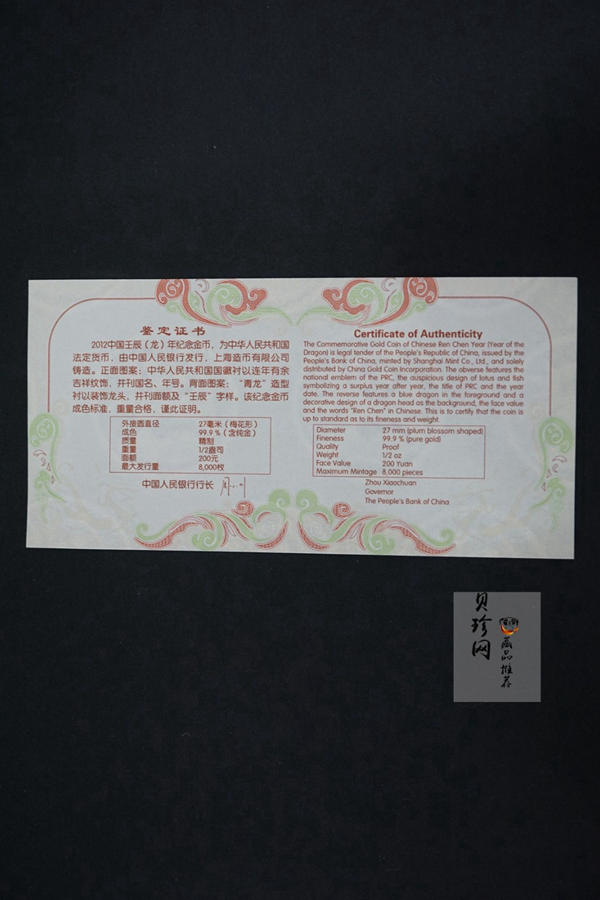 鉴定证书
2012中国壬辰（龙）年纪念金币，为中华人民共和国
法定货币，由中国人民银行发行，上海造币有限公司
铸造。正面图案：中华人民共和国国徽衬以连年有余
吉祥纹饰，并刊国名、年号。背面图案：“青龙”造型
衬以装饰龙头，并刊面额及“壬辰”字样。该纪念金币
成色标准，重量合格，谨此证明。
外接圆直径 27毫米（梅花形）
成色 99.9％（含纯金）
质量 精制
重量 1/2盎司
面额 200元
最大发行量 8,000枚
中国人民银行行长
Certificate of Authenticity
The Commemorative Gold Coin of Chinese Ren Chen Year (Year of the
Dragon) is legal tender of the People's Republic of China, issued by the
People's Bank of China, minted by Shanghai Mint Co., Ltd., and solely
distributed by China Gold Coin Incorporation. The obverse features the
national emblem of the PRC, the auspicious design of lotus and fish
symbolizing a surplus year after year, the title of PRC and the year
date. The reverse features a blue dragon in the foreground and a
decorative design of a dragon head as the background, the face value
and the words "Ren Chen" in Chinese. This is to certify that the coin is
up to standard as to its fineness and weight.
Diameter 27 mm (plum blossom shaped)
Fineness 99.9 % (pure gold)
Quality Proof
Weight 1/2 oz
Face Value 200 Yuan
Maximum Mintage 8,000 pieces
Zhou Xiaochuan
Governor
The People's Bank of China
贝珍网
藏品推荐